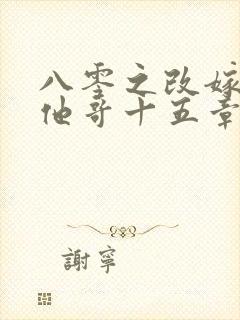 八零之改嫁
他哥十五章
謝寧